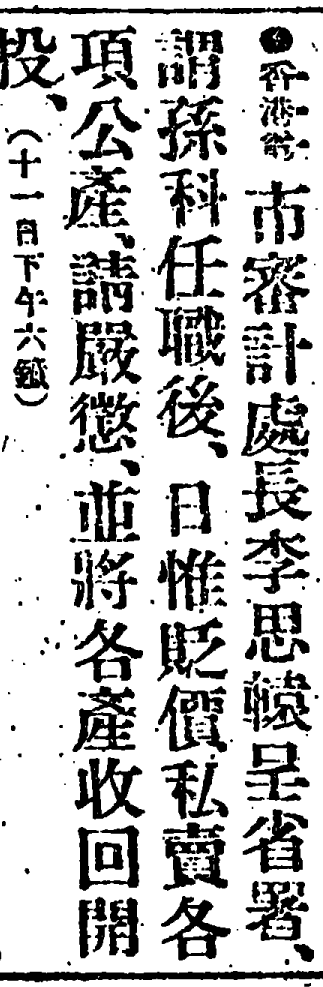 ●香港電 市審計處長李思轅呈省署、
謂孫科任職後、日惟貶價私賣各
項公產、請嚴懲、並將各產收回開
投、（十一日下午六鐘）